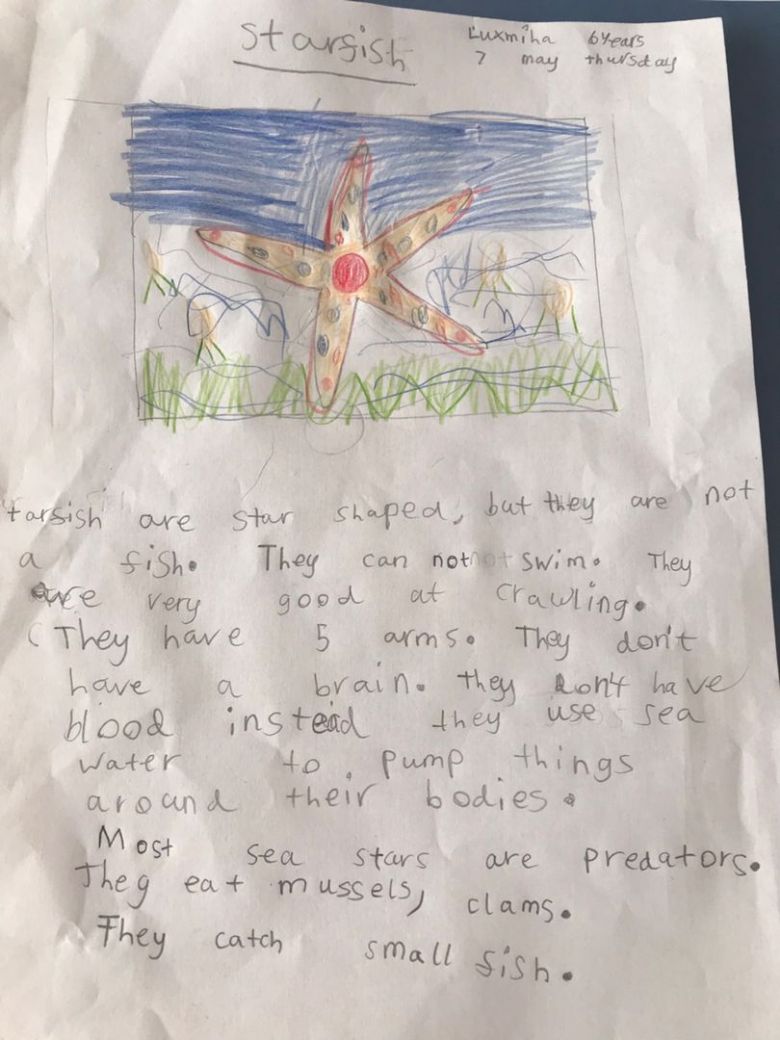 starfish
Luxmiha 6 Years
7 may thursday
tarsish are star shaped, but they are not
a fish. They can not swim. They
are very good at crawling.
They have 5 arms. They don't
have a brain. they don't have
blood instead they use sea
water to pump things
around their bodies.
Most sea stars are predators.
They eat mussels, clams.
They catch small fish.